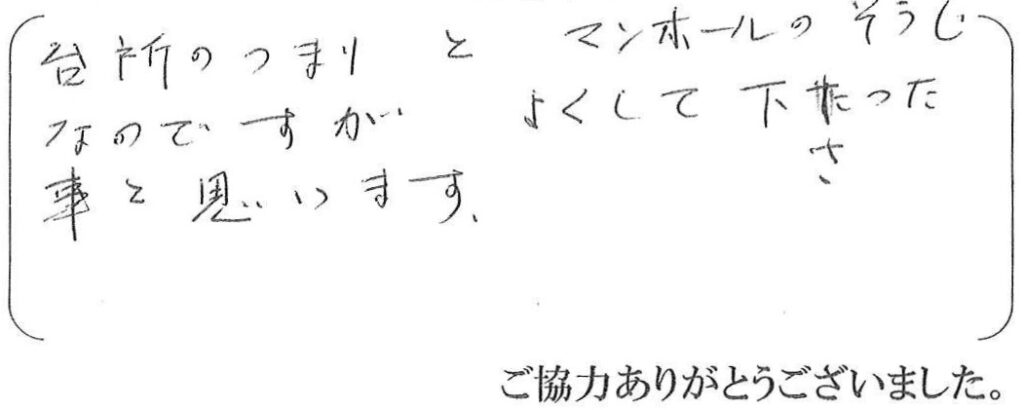 台所のつまりと マンホールのそうじ
なのですが よくして下さった
事と思います、
ご協力ありがとうございました。